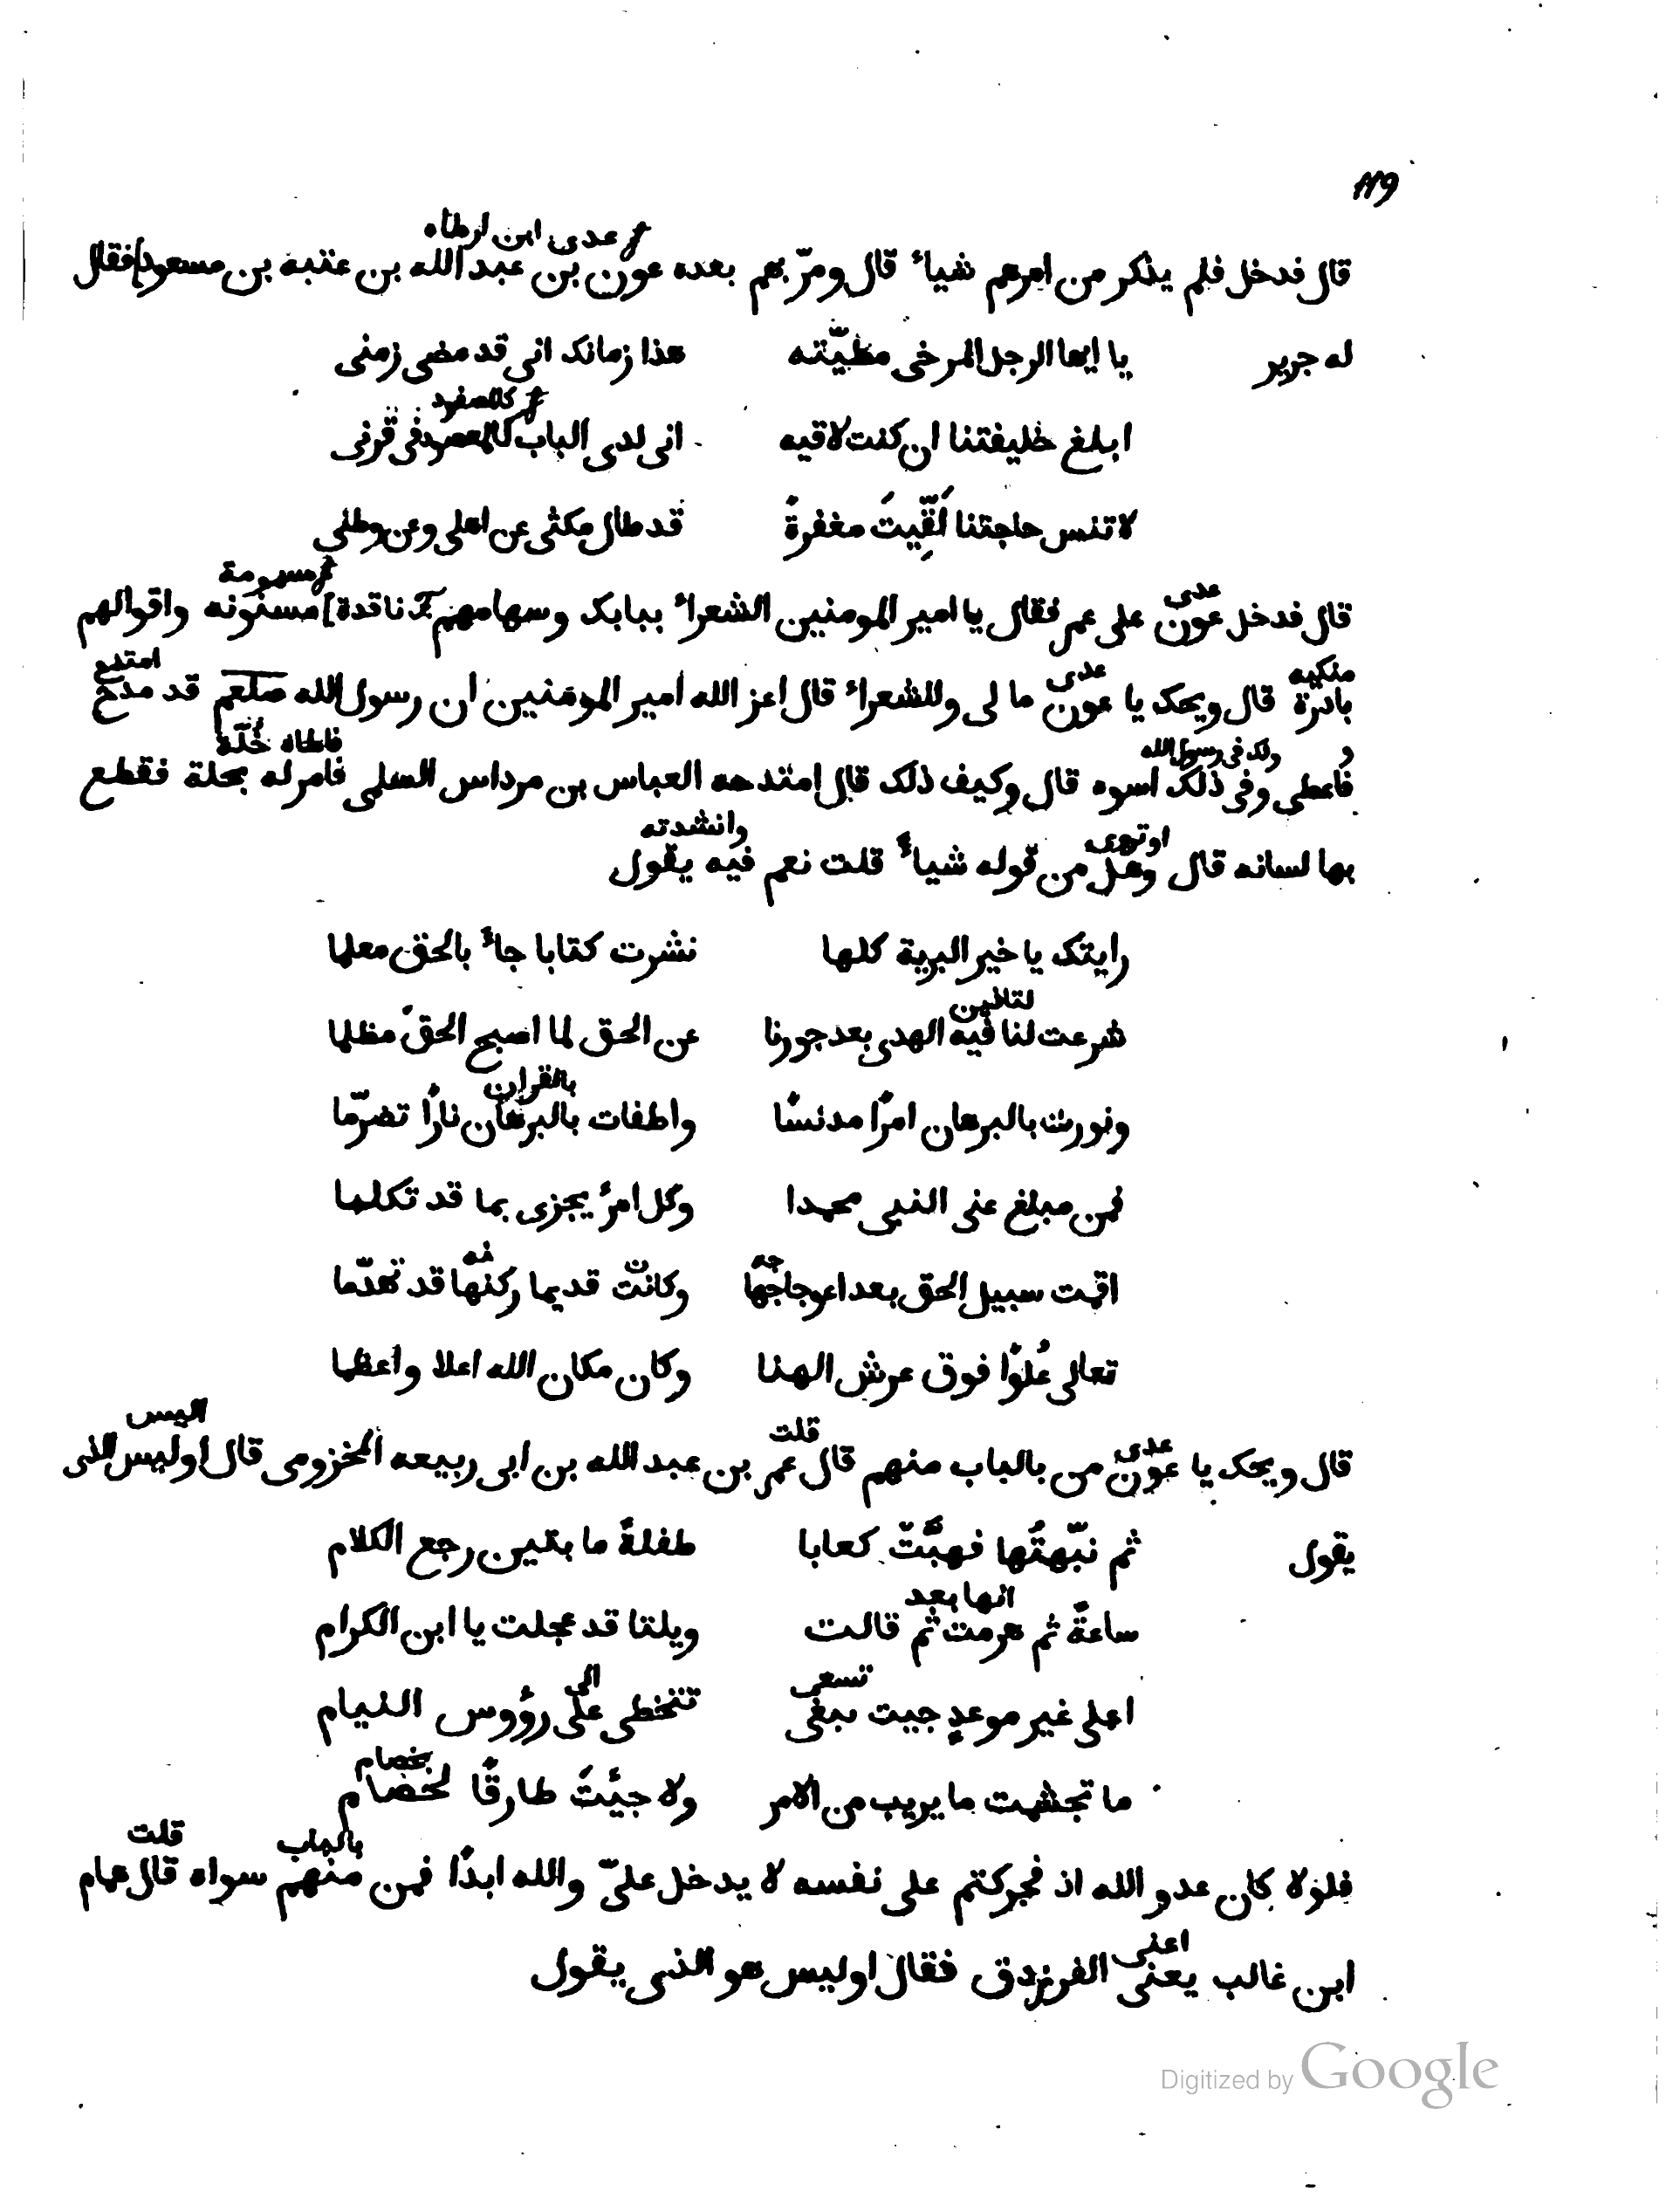 119
عدى ابن ارطاه
قال فدخل فلم يذكر من امرهم شياء قال ومرّ بهم بعده عون بن عبد الله بن عتبه بن مسعود] فقال
له جرير يا ايها الرجل المرخى مطيّته هذا زمانك انى قد مضى زمنى
كالصفود
ابلغ خليفتنا ان كنت لاقيه انى لدى الباب فى قرنى
لا تنس حاجتنا لُقِّيتَ مغفرةً قد طال مكثى عن اهلى وعن وطنى
عدى مسمومة
قال فدخل عون على عمر فقال يا امير المومنين الشعراء ببابك وسهامهم ناقدة] مسنونه واقوالهم
منكيه عدى امتدح
بادرة قال ويحك يا عون ما لى وللشعراء قال اعز الله امير المومنين ان رسول الله صلعم قد مدح
و ولك فى رسول الله فاعطاه حُلّة
فاعطى وفى ذلك اسوه قال وكيف ذلك قال امتدحه العباس بن مرداس السلمى فامر له بحلة فقطع
اوتروى وانشدته
بها لسانه قال وهل من قوله شياء قلت نعم فيه يقول
رايتك يا خير البرية كلها نشرت كتابا جاء بالحق معلما
لتابين
شرعت لنا فيه الهدى بعد جورنا عن الحق لما اصبح الحقُ مظلما
بالقران
ونورت بالبرهان امرًا مدنسًا واطفات بالبرهان نارًا تضرّما
فمن مبلغ عنى النبى محمدا وكل امرءٍ يجزى بما قد تكلما
جه نه
اقمت سبيل الحق بعد اعوجاجها وكانت قديما ركنها قد تهدّما
تعالى عُلوًا فوق عرش الهنا وكان مكان الله اعلا واعظما
عدى قلت اليس
قال ويحك يا عون من بالباب منهم قال عمر بن عبد الله بن ابى ربيعه المخزومى قال اوليس الذى
يقول ثم نبّهتُها فهبَّتْ كعابا طفلةً ما بتين رجع الكلام
انها بعد
ساعةً ثم هرمت ثم قالت ويلتا قد عجلت يا ابن الكرام
تسعى الى
اعلى غير موعدٍ جيت تبغى تتخطى على رؤوس النيام
بخصام
ما تجشمت ما يريب من الامر ولا جيْتَ طارقًا لخصام
بالباب قلت
فلولا كان عدو الله اذ فجر كتم على نفسه لا يدخل علىّ والله ابدًا فمن منهم سواه قال همام
اعنى
ابن غالب يعنى الفرزدق فقال اوليس هو الذى يقول
Digitized by Google